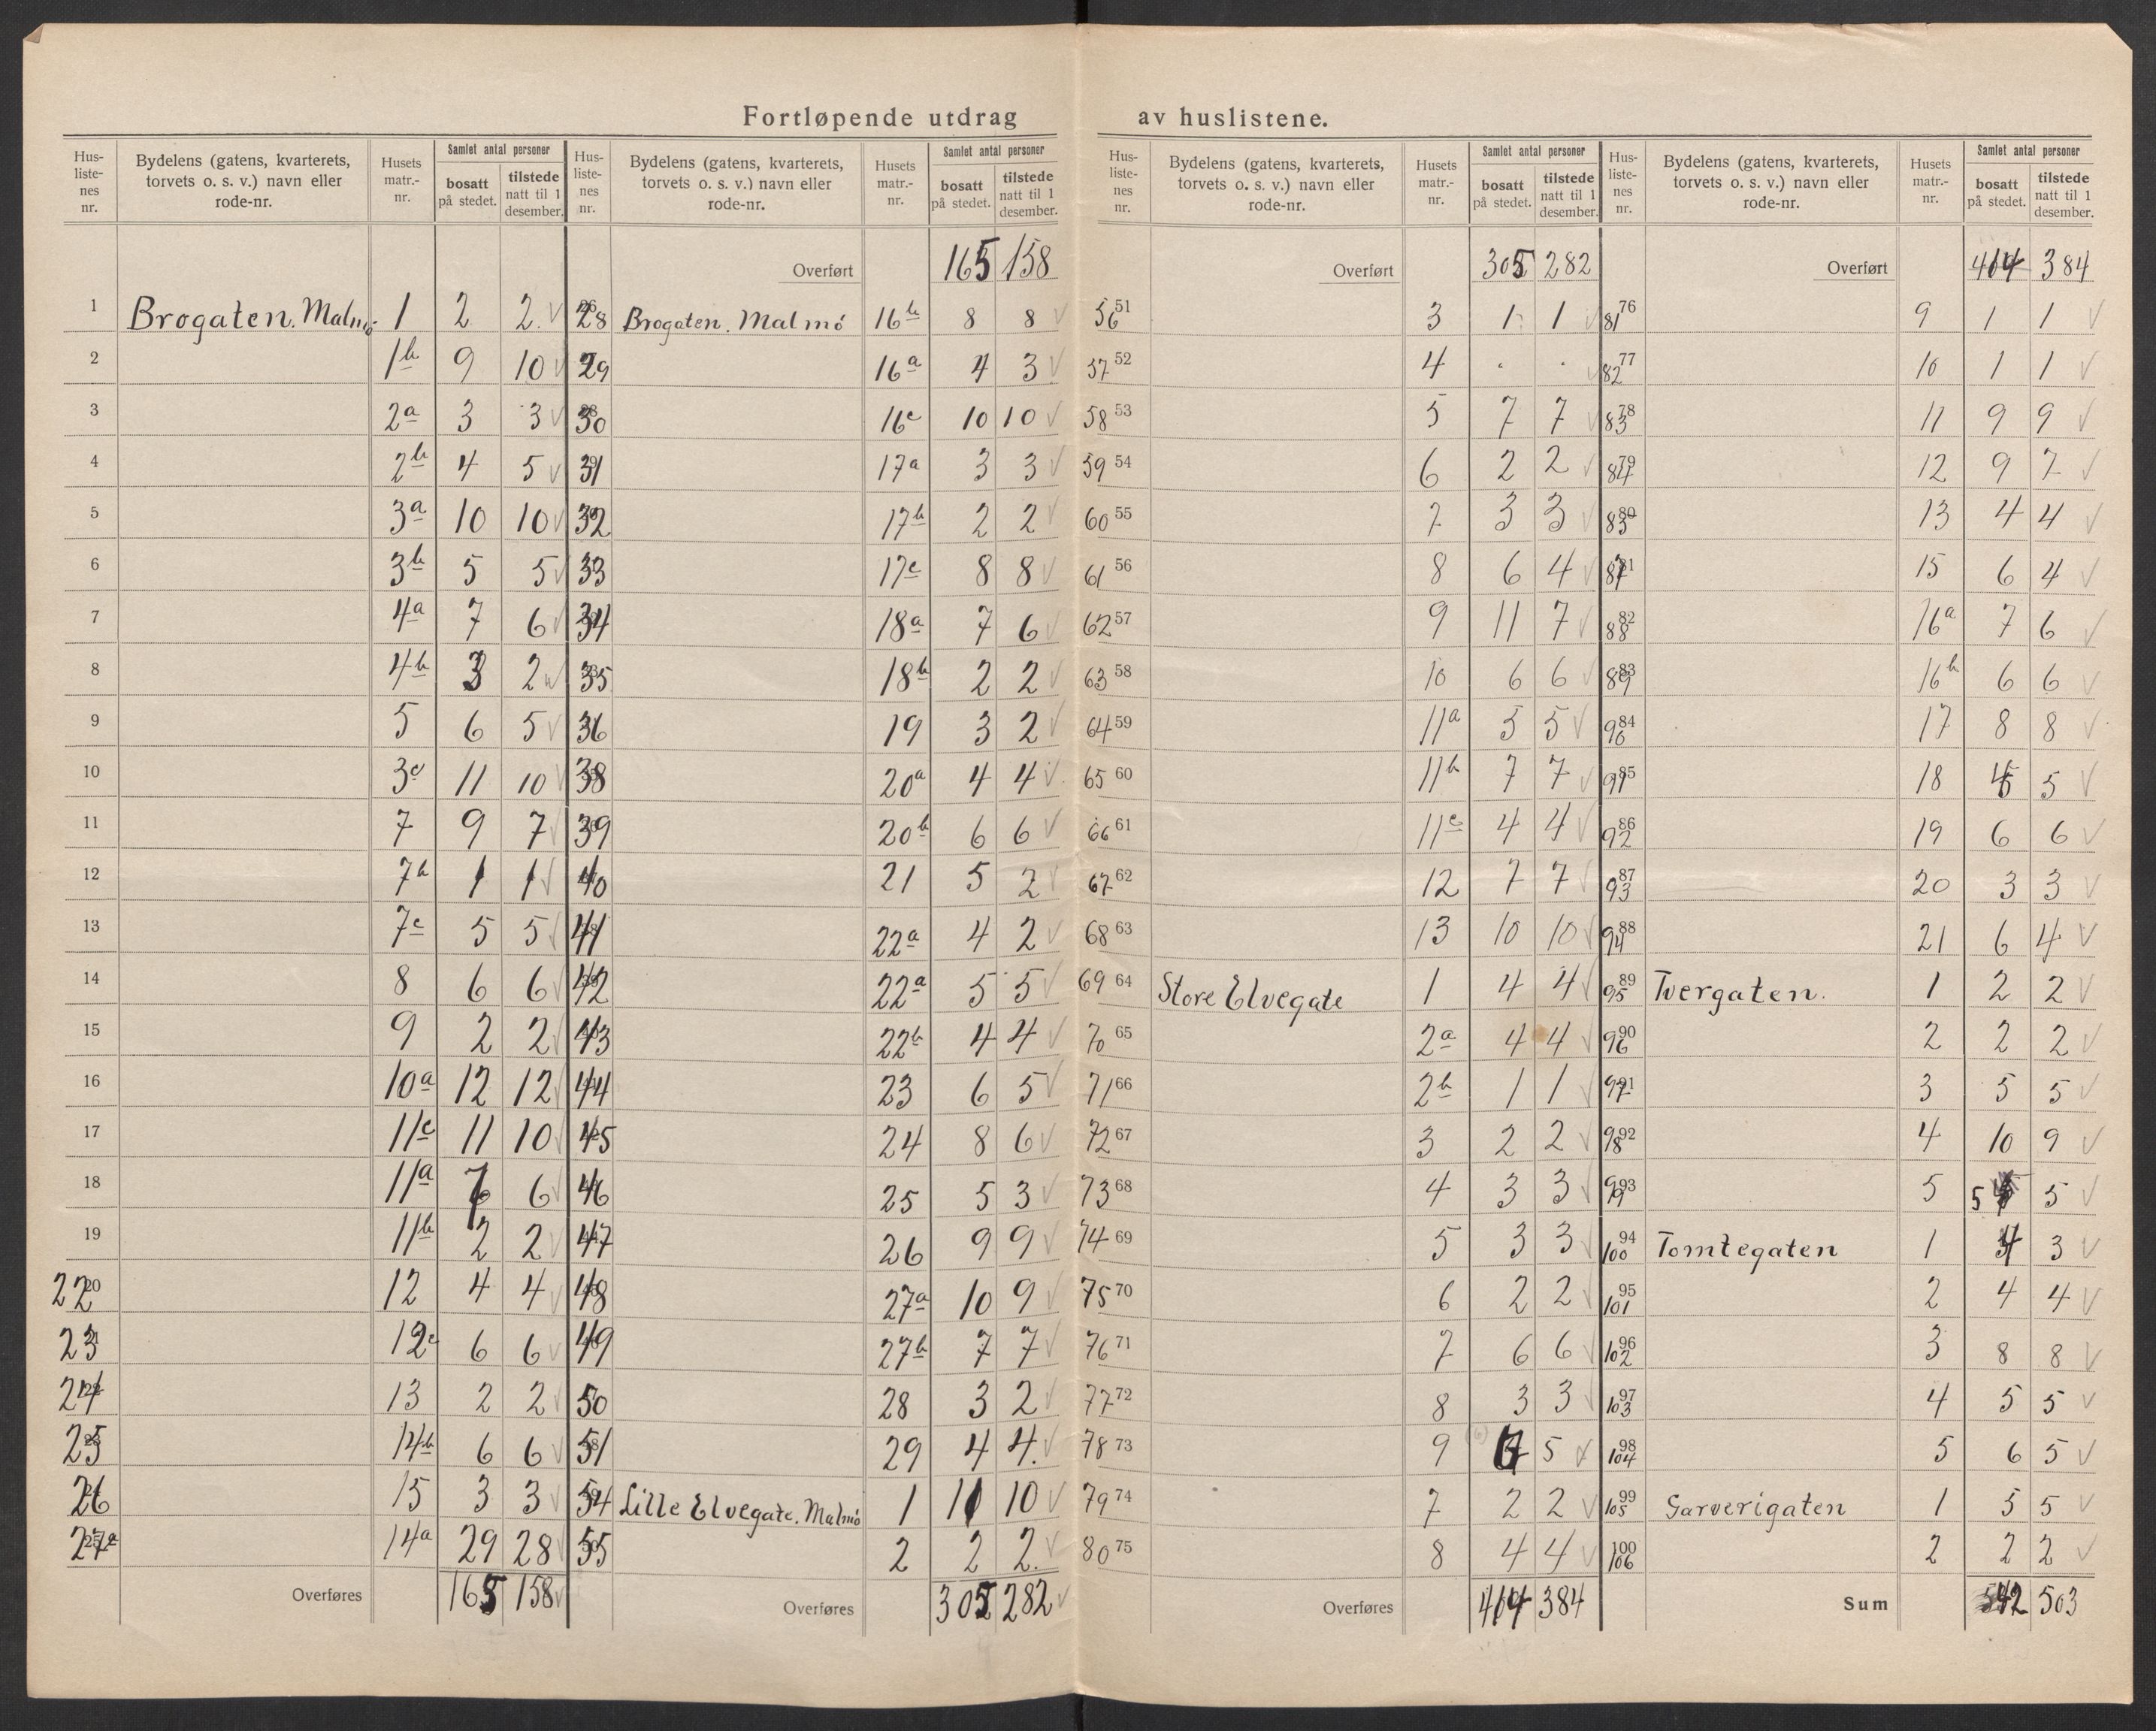 Fortløpende utdrag av huslistene.
Hus-liste-nes nr. | Bydelens (gatens, kvarterets, torvets o. s. v.) navn eller rode-nr. | Husets matr.-nr. | Samlet antal personer bosatt på stedet. | tilstede natt til 1 desember.
1 Brogaten. Malmö 1 2 2 ✓
2 1b 9 10 ✓
3 2a 3 3 ✓
4 2b 4 5 ✓
5 3a 10 10 ✓
6 3b 5 5 ✓
7 4a 7 6 ✓
8 4b 3 2 ✓
9 5 6 5 ✓
10 3c 11 10 ✓
11 7 9 7 ✓
12 7b 1 1 ✓
13 7c 5 5 ✓
14 8 6 6 ✓
15 9 2 2 ✓
16 10a 12 12 ✓
17 11c 11 10 ✓
18 11a 6 ✓
19 11b 2 2 ✓
22 12 4 4 ✓
23 12c 6 6 ✓
24 13 2 2 ✓
25 14b 6 6 ✓
26 15 3 3 ✓
27a 14a 29 28 ✓
Overføres 165 158 ✓
Hus-liste-nes nr. | Bydelens (gatens, kvarterets, torvets o. s. v.) navn eller rode-nr. | Husets matr.-nr. | Samlet antal personer bosatt på stedet. | tilstede natt til 1 desember.
Overført 165 158
28 Brogaten. Malmö 16b 8 8 ✓
29 16a 4 3 ✓
30 16c 10 10 ✓
31 17a 3 3 ✓
32 17b 2 2 ✓
33 17c 8 8 ✓
34 18a 7 6 ✓
35 18b 2 2 ✓
36 19 3 2 ✓
38 20a 4 4 ✓
39 20b 6 6 ✓
40 21 5 2 ✓
41 22a 4 2 ✓
42 22a 5 5 ✓
43 22b 4 4 ✓
44 23 6 5 ✓
45 24 8 6 ✓
46 25 5 3 ✓
47 26 9 9 ✓
48 27a 10 9 ✓
49 27b 7 7 ✓
50 28 3 2 ✓
51 29 4 4 ✓
54 Lille Elvegate. Malmö 1 11 10 ✓
55 2 2 2 ✓
Overføres 305 282 ✓
Hus-liste-nes nr. | Bydelens (gatens, kvarterets, torvets o. s. v.) navn eller rode-nr. | Husets matr.-nr. | Samlet antal personer bosatt på stedet. | tilstede natt til 1 desember.
Overført 305 282
56 51 3 1 1 ✓
57 52 4 . . ✓
58 53 5 7 7 ✓
59 54 6 2 2 ✓
60 55 7 3 3 ✓
61 56 8 6 4 ✓
62 57 9 11 7 ✓
63 58 10 6 6 ✓
64 59 11a 5 5 ✓
65 60 11b 7 7 ✓
66 61 11c 4 4 ✓
67 62 12 7 7 ✓
68 63 13 10 10 ✓
69 64 Store Elvegate 1 4 4 ✓
70 65 2a 4 4 ✓
71 66 2b 1 1 ✓
72 67 3 2 2 ✓
73 68 4 3 3 ✓
74 69 5 3 3 ✓
75 70 6 2 2 ✓
76 71 7 6 6 ✓
77 72 8 3 3 ✓
78 73 9 5 ✓
79 74 7 2 2 ✓
80 75 8 4 4 ✓
Overføres 384
Hus-liste-nes nr. | Bydelens (gatens, kvarterets, torvets o. s. v.) navn eller rode-nr. | Husets matr.-nr. | Samlet antal personer bosatt på stedet. | tilstede natt til 1 desember.
Overført 384
81 76 9 1 1 ✓
82 77 10 1 1 ✓
83 78 11 9 9 ✓
84 79 12 9 7 ✓
83 80 13 4 4 ✓
87 81 15 6 4 ✓
88 82 16a 7 6 ✓
89 83 16b 6 6 ✓
90 84 17 8 8 ✓
91 85 18 5 ✓
92 86 19 6 6 ✓
93 87 20 3 3 ✓
94 88 21 6 4 ✓
95 89 Tvergaten. 1 2 2 ✓
96 90 2 2 2 ✓
97 91 3 5 5 ✓
98 92 4 10 9 ✓
99 93 5 5 5 ✓
100 94 Tomtegaten 1 4 3 ✓
101 95 2 4 4 ✓
102 96 3 8 8 ✓
103 97 4 5 5 ✓
104 98 5 6 5 ✓
105 99 Garverigaten 1 5 5 ✓
106 100 2 2 2 ✓
Sum 542 503